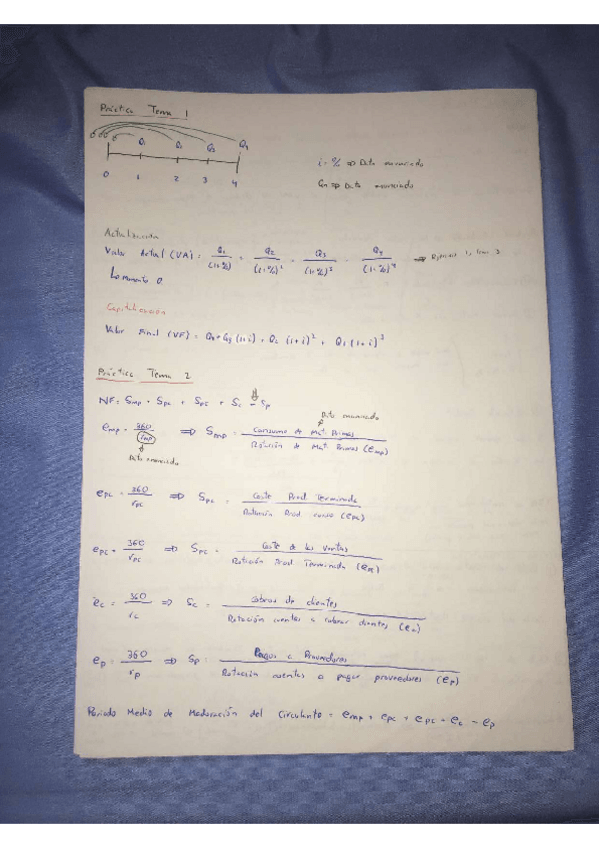 Práctica Tema 1
Q1 Q2 Q3 Q4
0 1 2 3 4
i = % => Dato enunciado
Qn => Dato enunciado
Actualización
Valor Actual (VA) = Q1/(1+%) + Q2/(1+%)² + Q3/(1+%)³ + Q4/(1+%)⁴ => Ejercicio 1, Tema 3
↳ Momento 0
Capitalización
Valor Final (VF) = Q4 + Q3 (1+i) + Q2 (1+i)² + Q1 (1+i)³
Práctica Tema 2
NF = Smp + Spc + Spt + Sc - Sp
Dato enunciado
emp = 360/rmp => Smp = Consumo de Mat. Primas/Rotación de Mat. Primas (emp)
Dato enunciado
epc = 360/rpc => Spc = Coste Prod Terminada/Rotación Prod curso (epc)
epc = 360/rpc => Spc = Coste de las ventas/Rotación Prod Terminada
ec = 360/rc => Sc = Cobros de clientes/Rotación cuentas a cobrar clientes (ec)
ep = 360/rp => Sp = Pagos a Proveedores/Rotación cuentas a pagar proveedores (ep)
Periodo Medio de Maduración del Circulante = emp + epc + epc + ec - ep